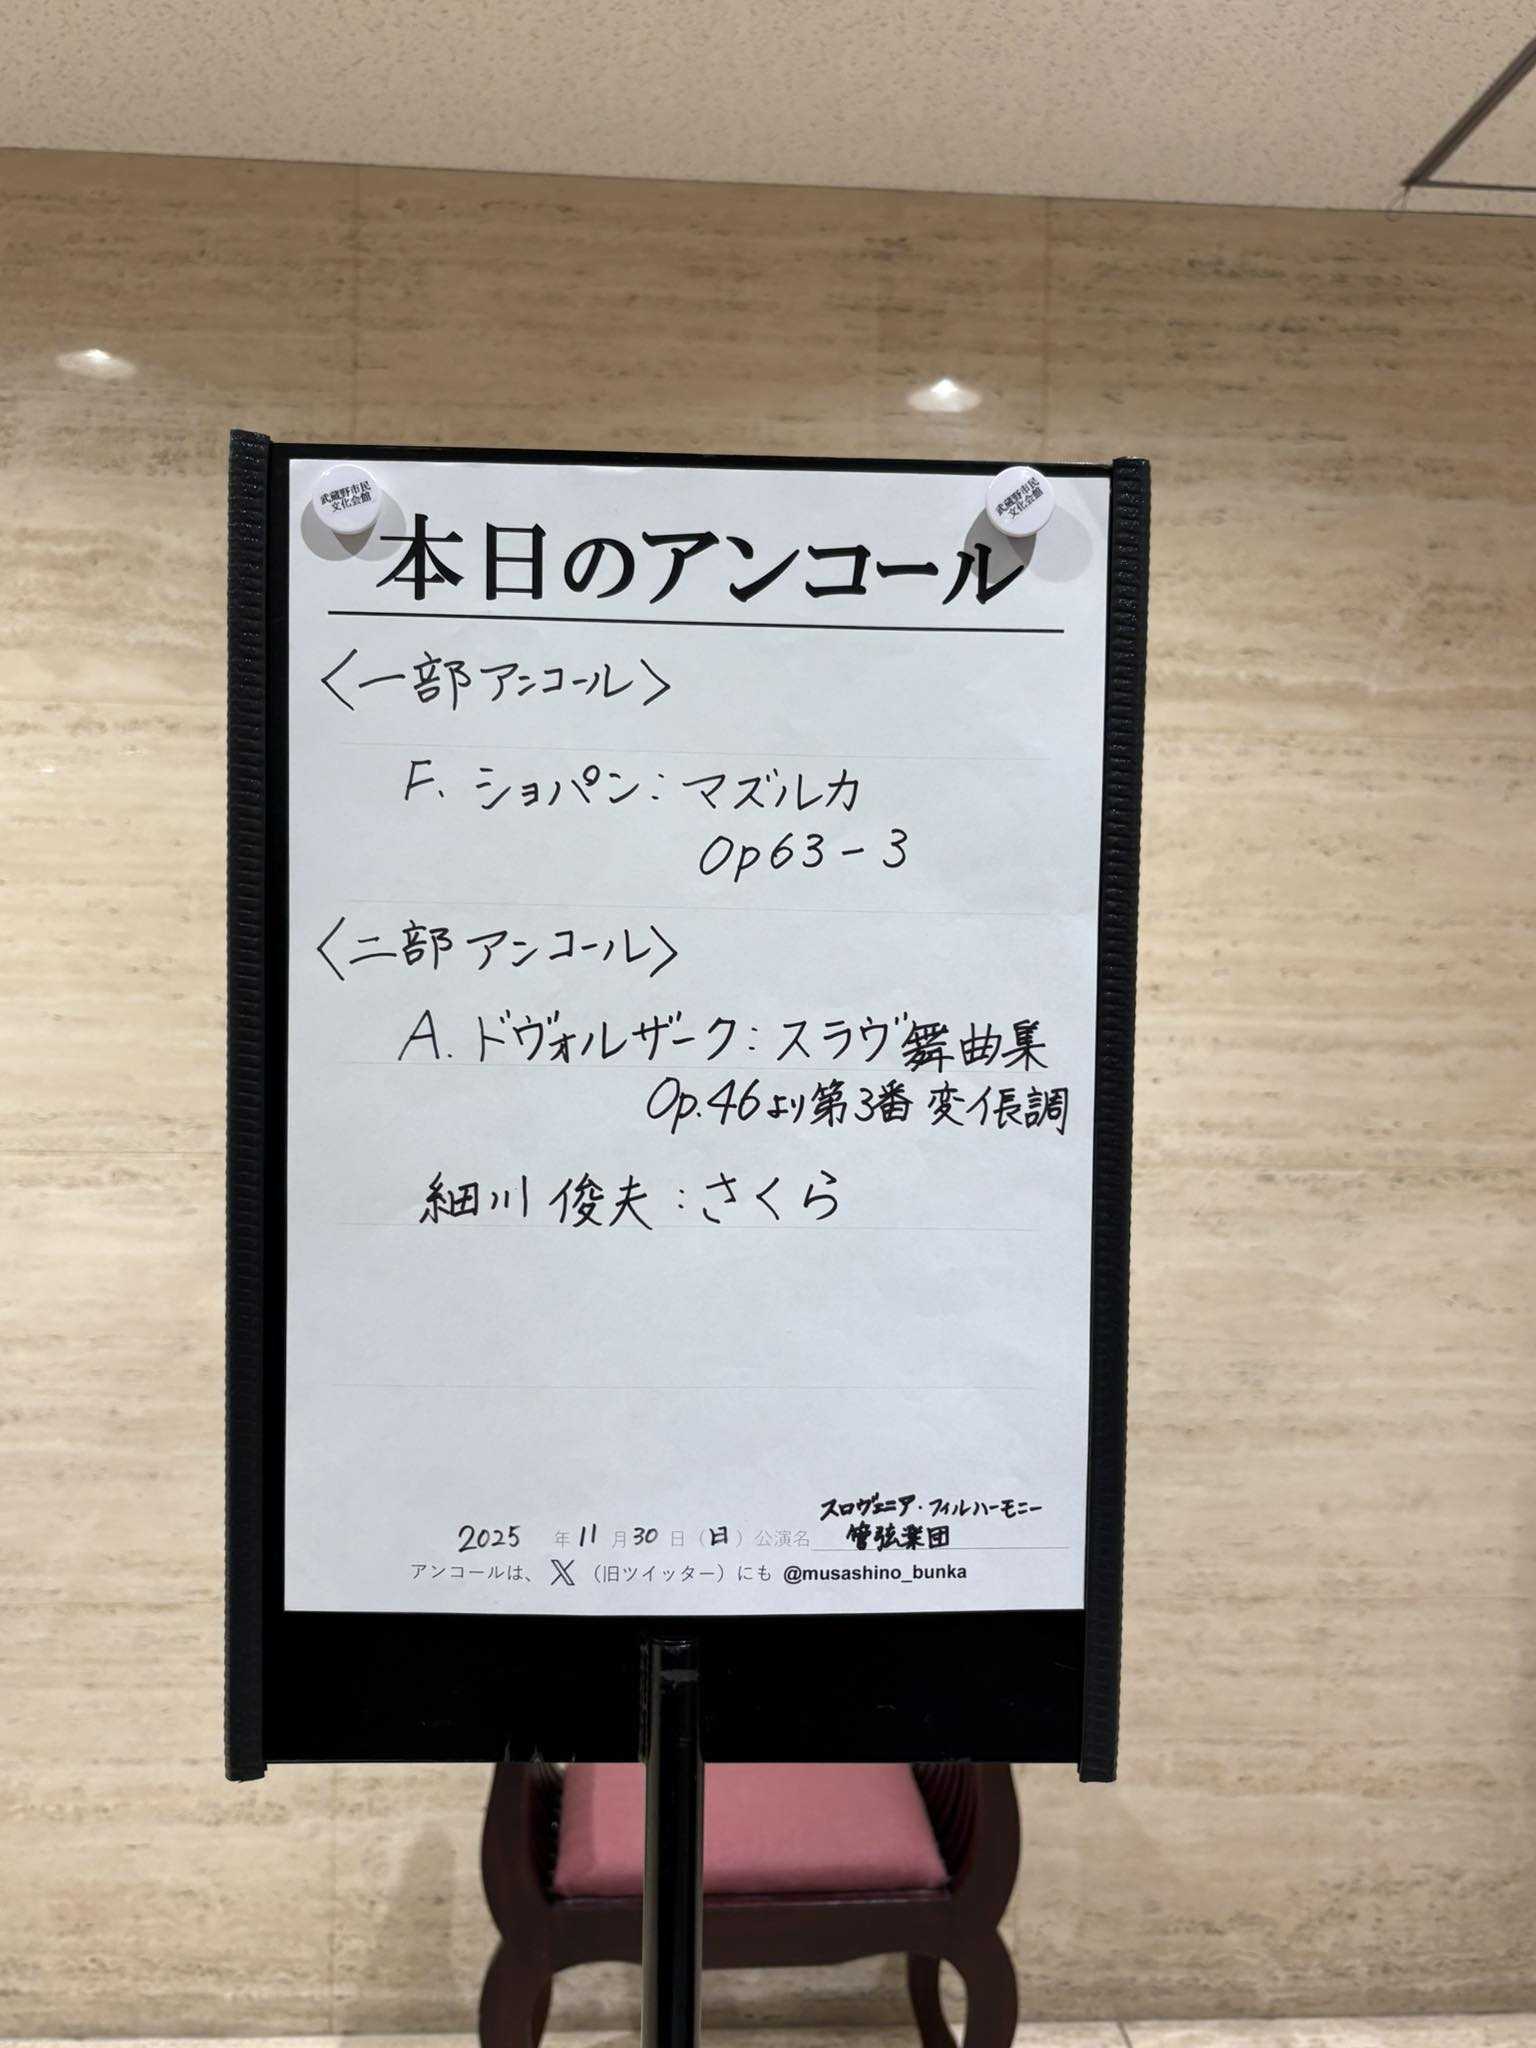 武蔵野市民
文化会館
武蔵野市民
文化会館
本日のアンコール
〈一部アンコール〉
F. ショパン：マズルカ
Op63-3
〈二部アンコール〉
A. ドヴォルザーク：スラヴ舞曲集
Op.46より第3番 変イ長調
細川 俊夫：さくら
スロヴェニア・フィルハーモニー
2025 年 11 月 30 日（日）公演名 管弦楽団
アンコールは、X（旧ツイッター）にも @musashino_bunka